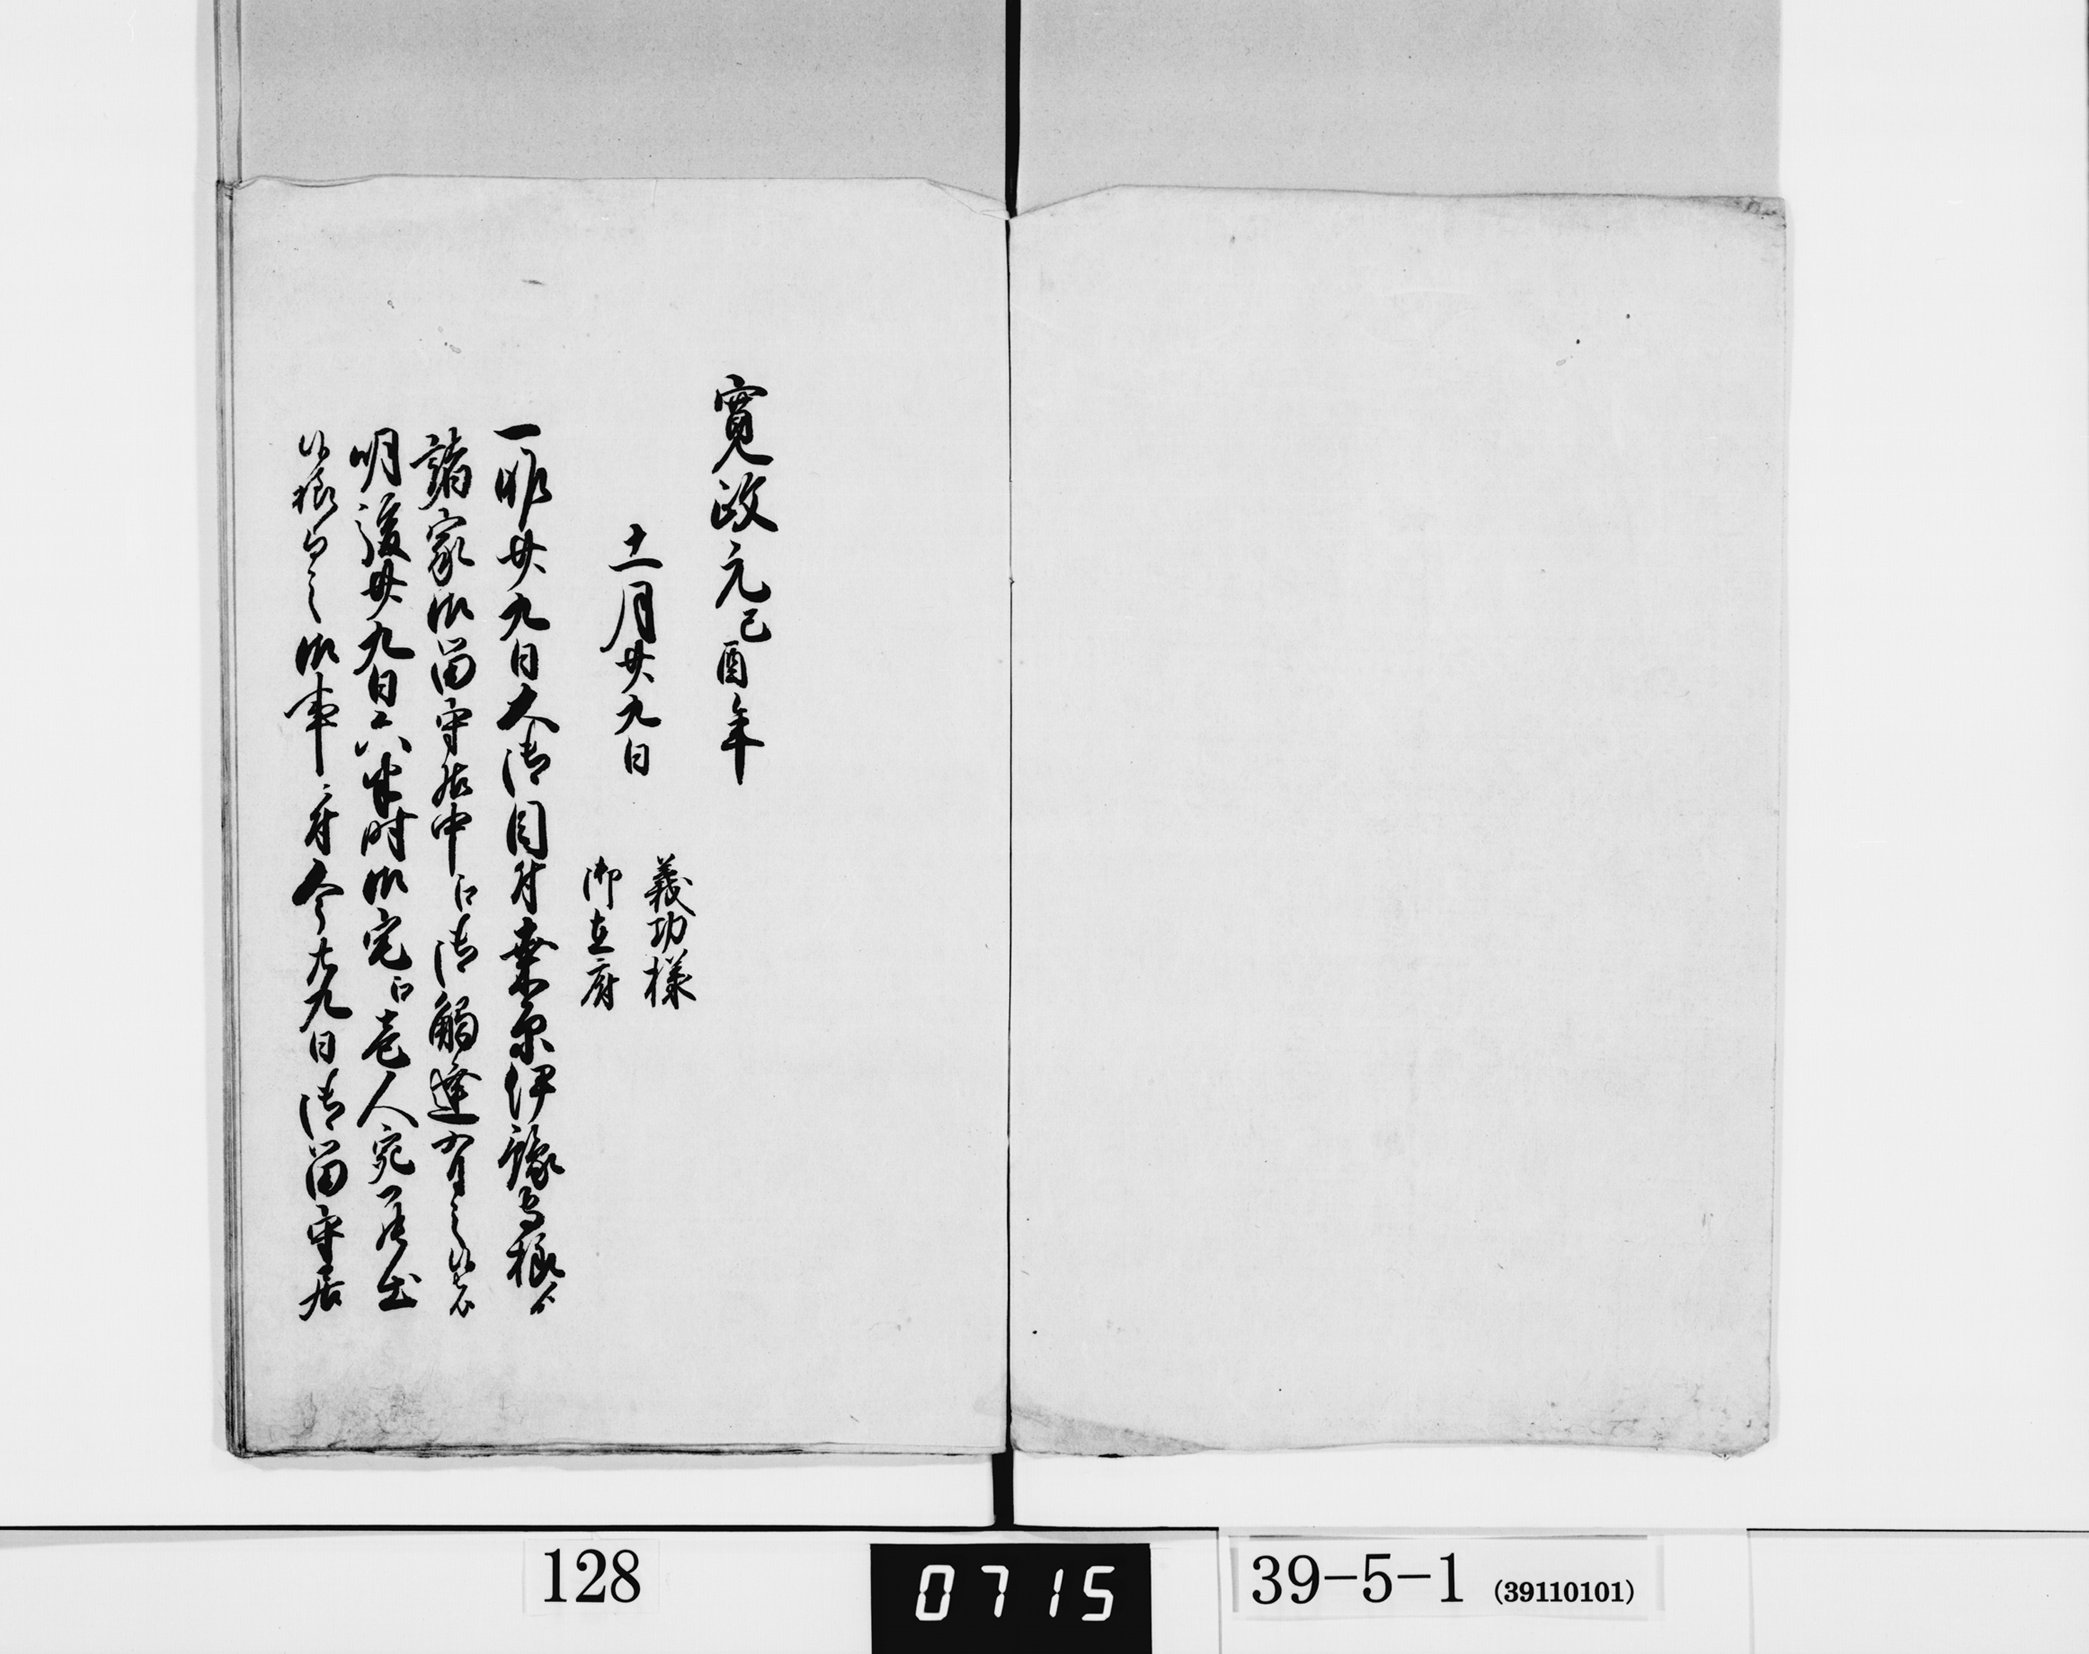 寛政元己酉年
十一月廿九日
義功様
御在府
一昨廿九日大御目付桑原伊豫守様ゟ
諸家御留守居中江御觸達有之候者
明後廿九日六半時御宅江壱人宛罷出
候様与之御事ニ付今廿九日御留守居
128
0715
39-5-1 (39110101)